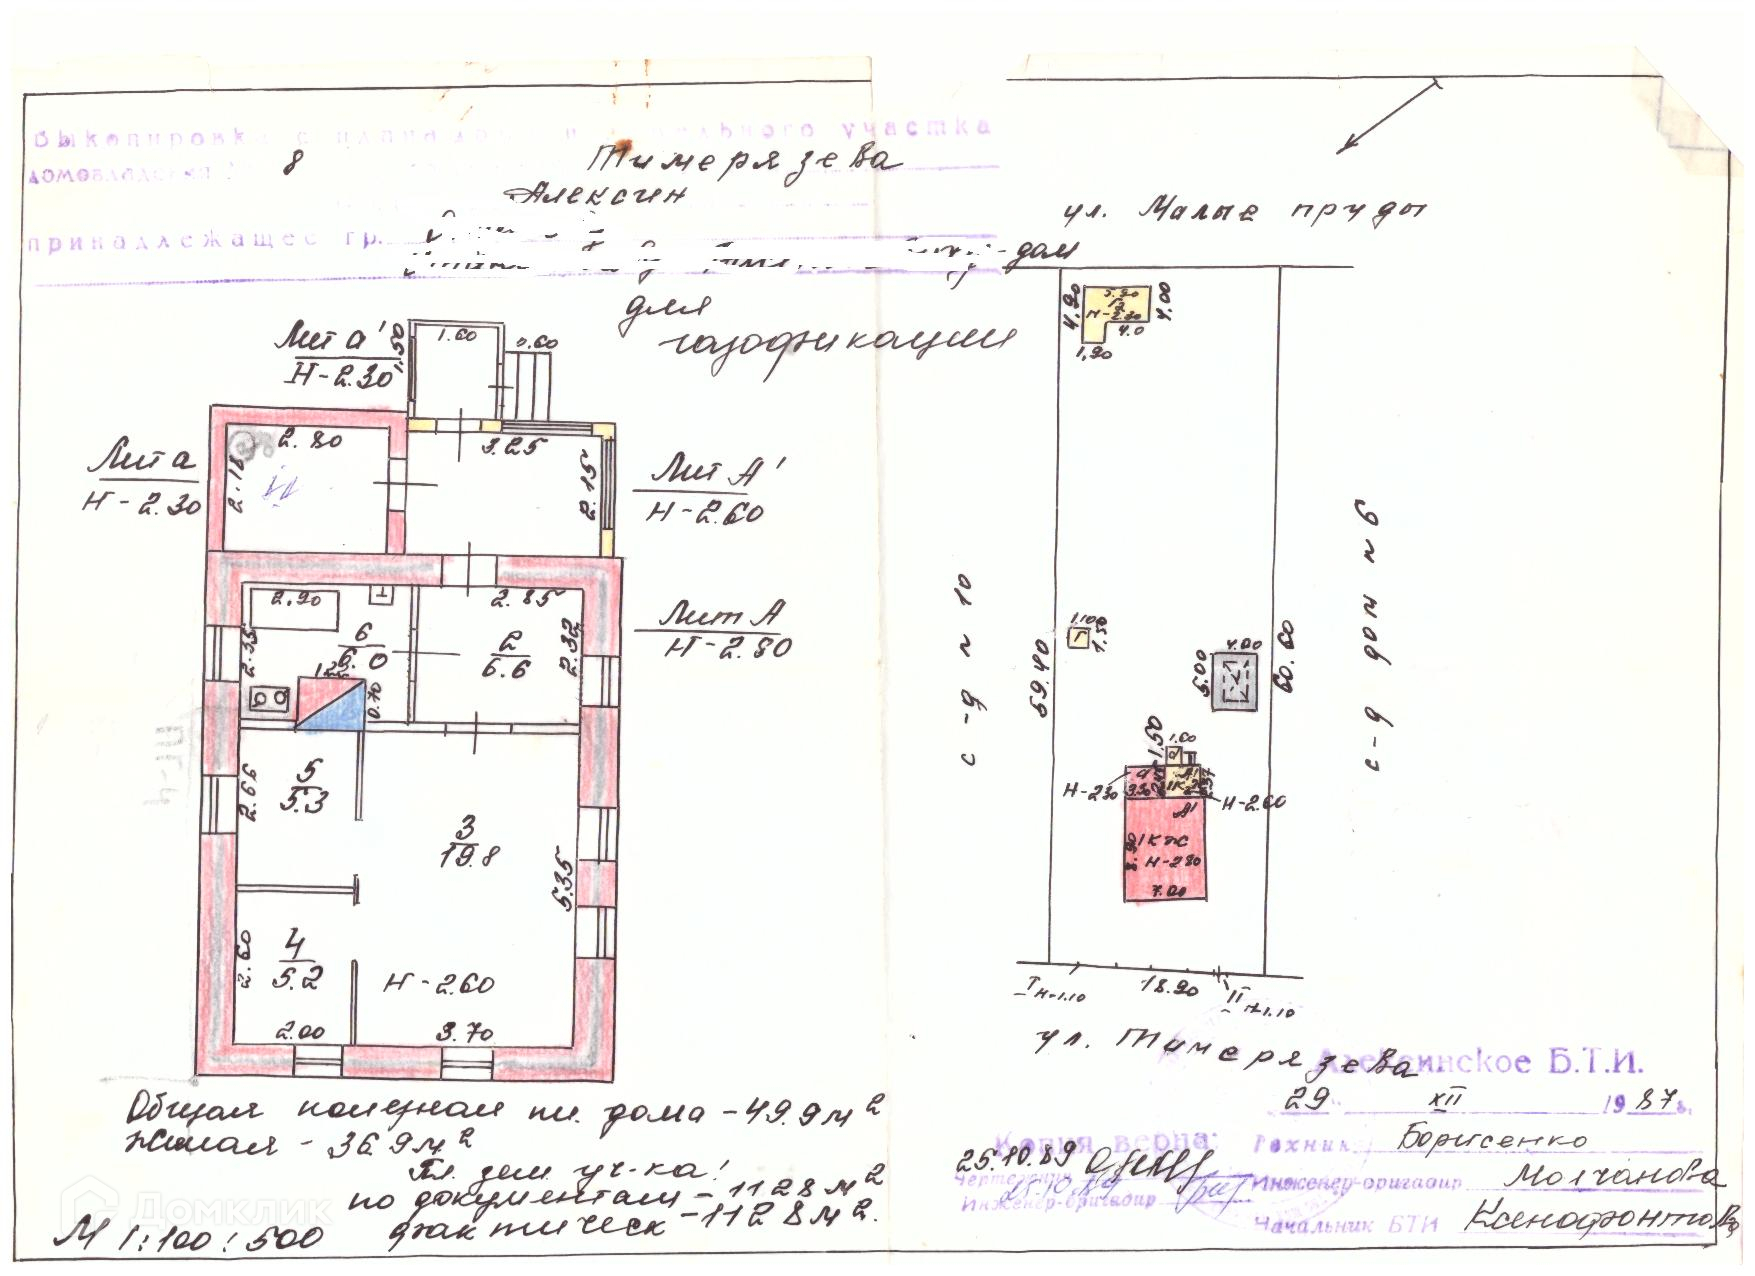 Выкопировка с плана земельного участка
домовладения № 8 Тимерязева
Алексин
принадлежащее гр.
дом
для
газофикации
Лит а'
Н-2.30
1.50
1.60
0.60
Лит а
Н-2.30
2.80
2.18
3.25
2.15
Лит А'
Н-2.60
2.90
2.35
6
6.0
0.70
2.85
2.32
2
6.6
Лит А
Н-2.80
5
5.3
2.66
3
19.8
5.35
4
5.2
2.60
Н-2.60
2.00
3.70
Общая полезная пл. дома - 49.9 м2
Жилая - 36.9 м2
Пл. зем. уч-ка:
по документам - 1128 м2
фактическ - 1128 м2.
М 1:100 : 500
Домклик
ул. Малые пруды
4.90
5.90
Г2
Н-2.30
4.00
4.0
1.90
с-д N 10
69.40
1.10
Г
1.50
4.00
5.00
60.60
с-д дом N 6
1.50
1.60
Н-2.30
Н-2.60
А1
1КЖ
Н-2.80
8.90
7.00
I Н-1.10
18.90
II Н-1.10
ул. Тимерязева
Алексинское Б.Т.И.
29 XII 1987 г.
Копия верна:
25.10.89
Техник Борисенко
Чертежник
Инженер-бригадир Молчанова
Инженер-бригадир
Начальник БТИ Ксенофонтова